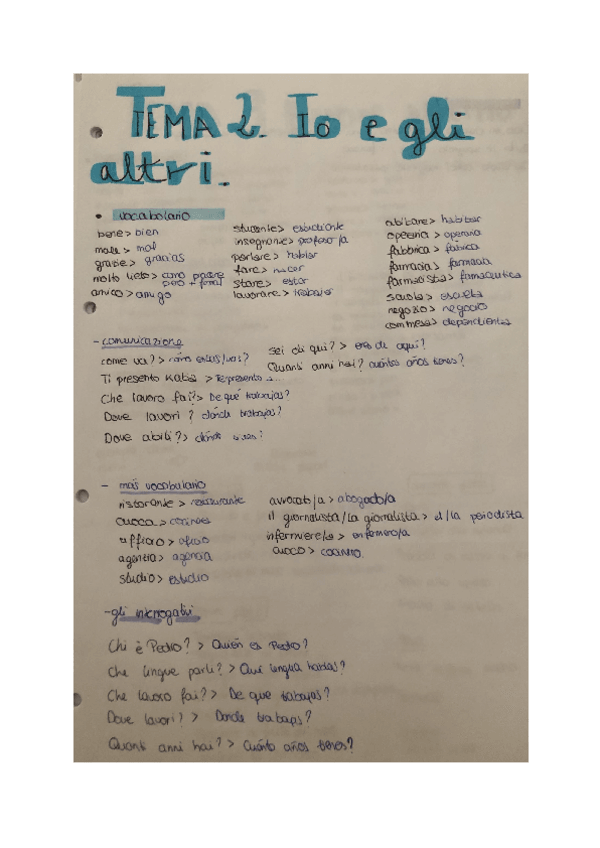 TEMA 2. Io e gli
altri.
• vocabolario
bene > bien
male > mal
grazie > gracias
molto lieto >
amico > amigo
studente > estudiante
insegnante > profesor/a
parlare > hablar
fare > hacer
stare > estar
lavorare > trabajar
abitare > habitar
operaia > operaria
fabbrica > fábrica
farmacia > farmacia
farmacista > farmaceutica
scuola > escuela
negozio > negocio
commessa > dependienta
- comunicazione
come va? > cómo estás/vas?
Ti presento Kaba > Te presento a...
Che lavoro fai? > De qué trabajas?
Dove lavori? > dónde trabajas?
Dove abiti? > dónde vives?
Sei di qui? > eres de aquí?
Quanti anni hai? cuántos años tienes?
- más vocabulario
ristorante > restaurante
cuoca > cocinera
ufficio >
agenzia > agencia
studio > estudio
avvocato/a > abogado/a
il giornalista/la giornalista > el/la periodista
infermiere/a > enfermero/a
cuoco >
- gli interrogativi
Chi è Pedro? > Quién es Pedro?
Che lingue parli? > Qué lengua hablas?
Che lavoro fai? > De que trabajas?
Dove lavori? > Donde trabajas?
Quanti anni hai? > Cuánto años tienes?